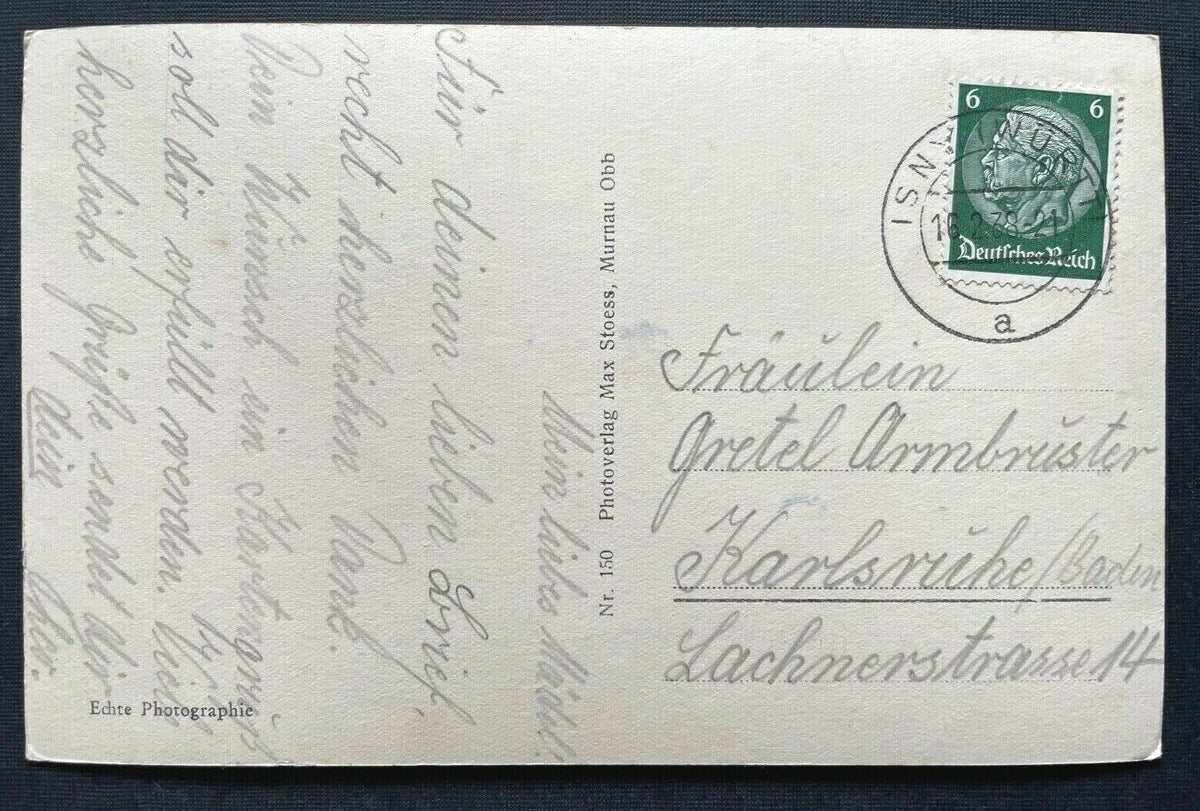 Mein liebes Mädel!
Für deinen lieben Brief,
recht herzlichen Dank.
Dein Wunsch ein Kartengruß
soll dir erfüllt werden.
herzliche Grüße sendet dir
dein
Nr. 150 Photoverlag Max Stoess, Murnau Obb
Echte Photographie
6 6
Deutsches Reich
ISNY (WÜRTT)
16.2.38-21
a
Fräulein
Gretel Armbruster
Karlsruhe/Baden
Lachnerstrasse 14